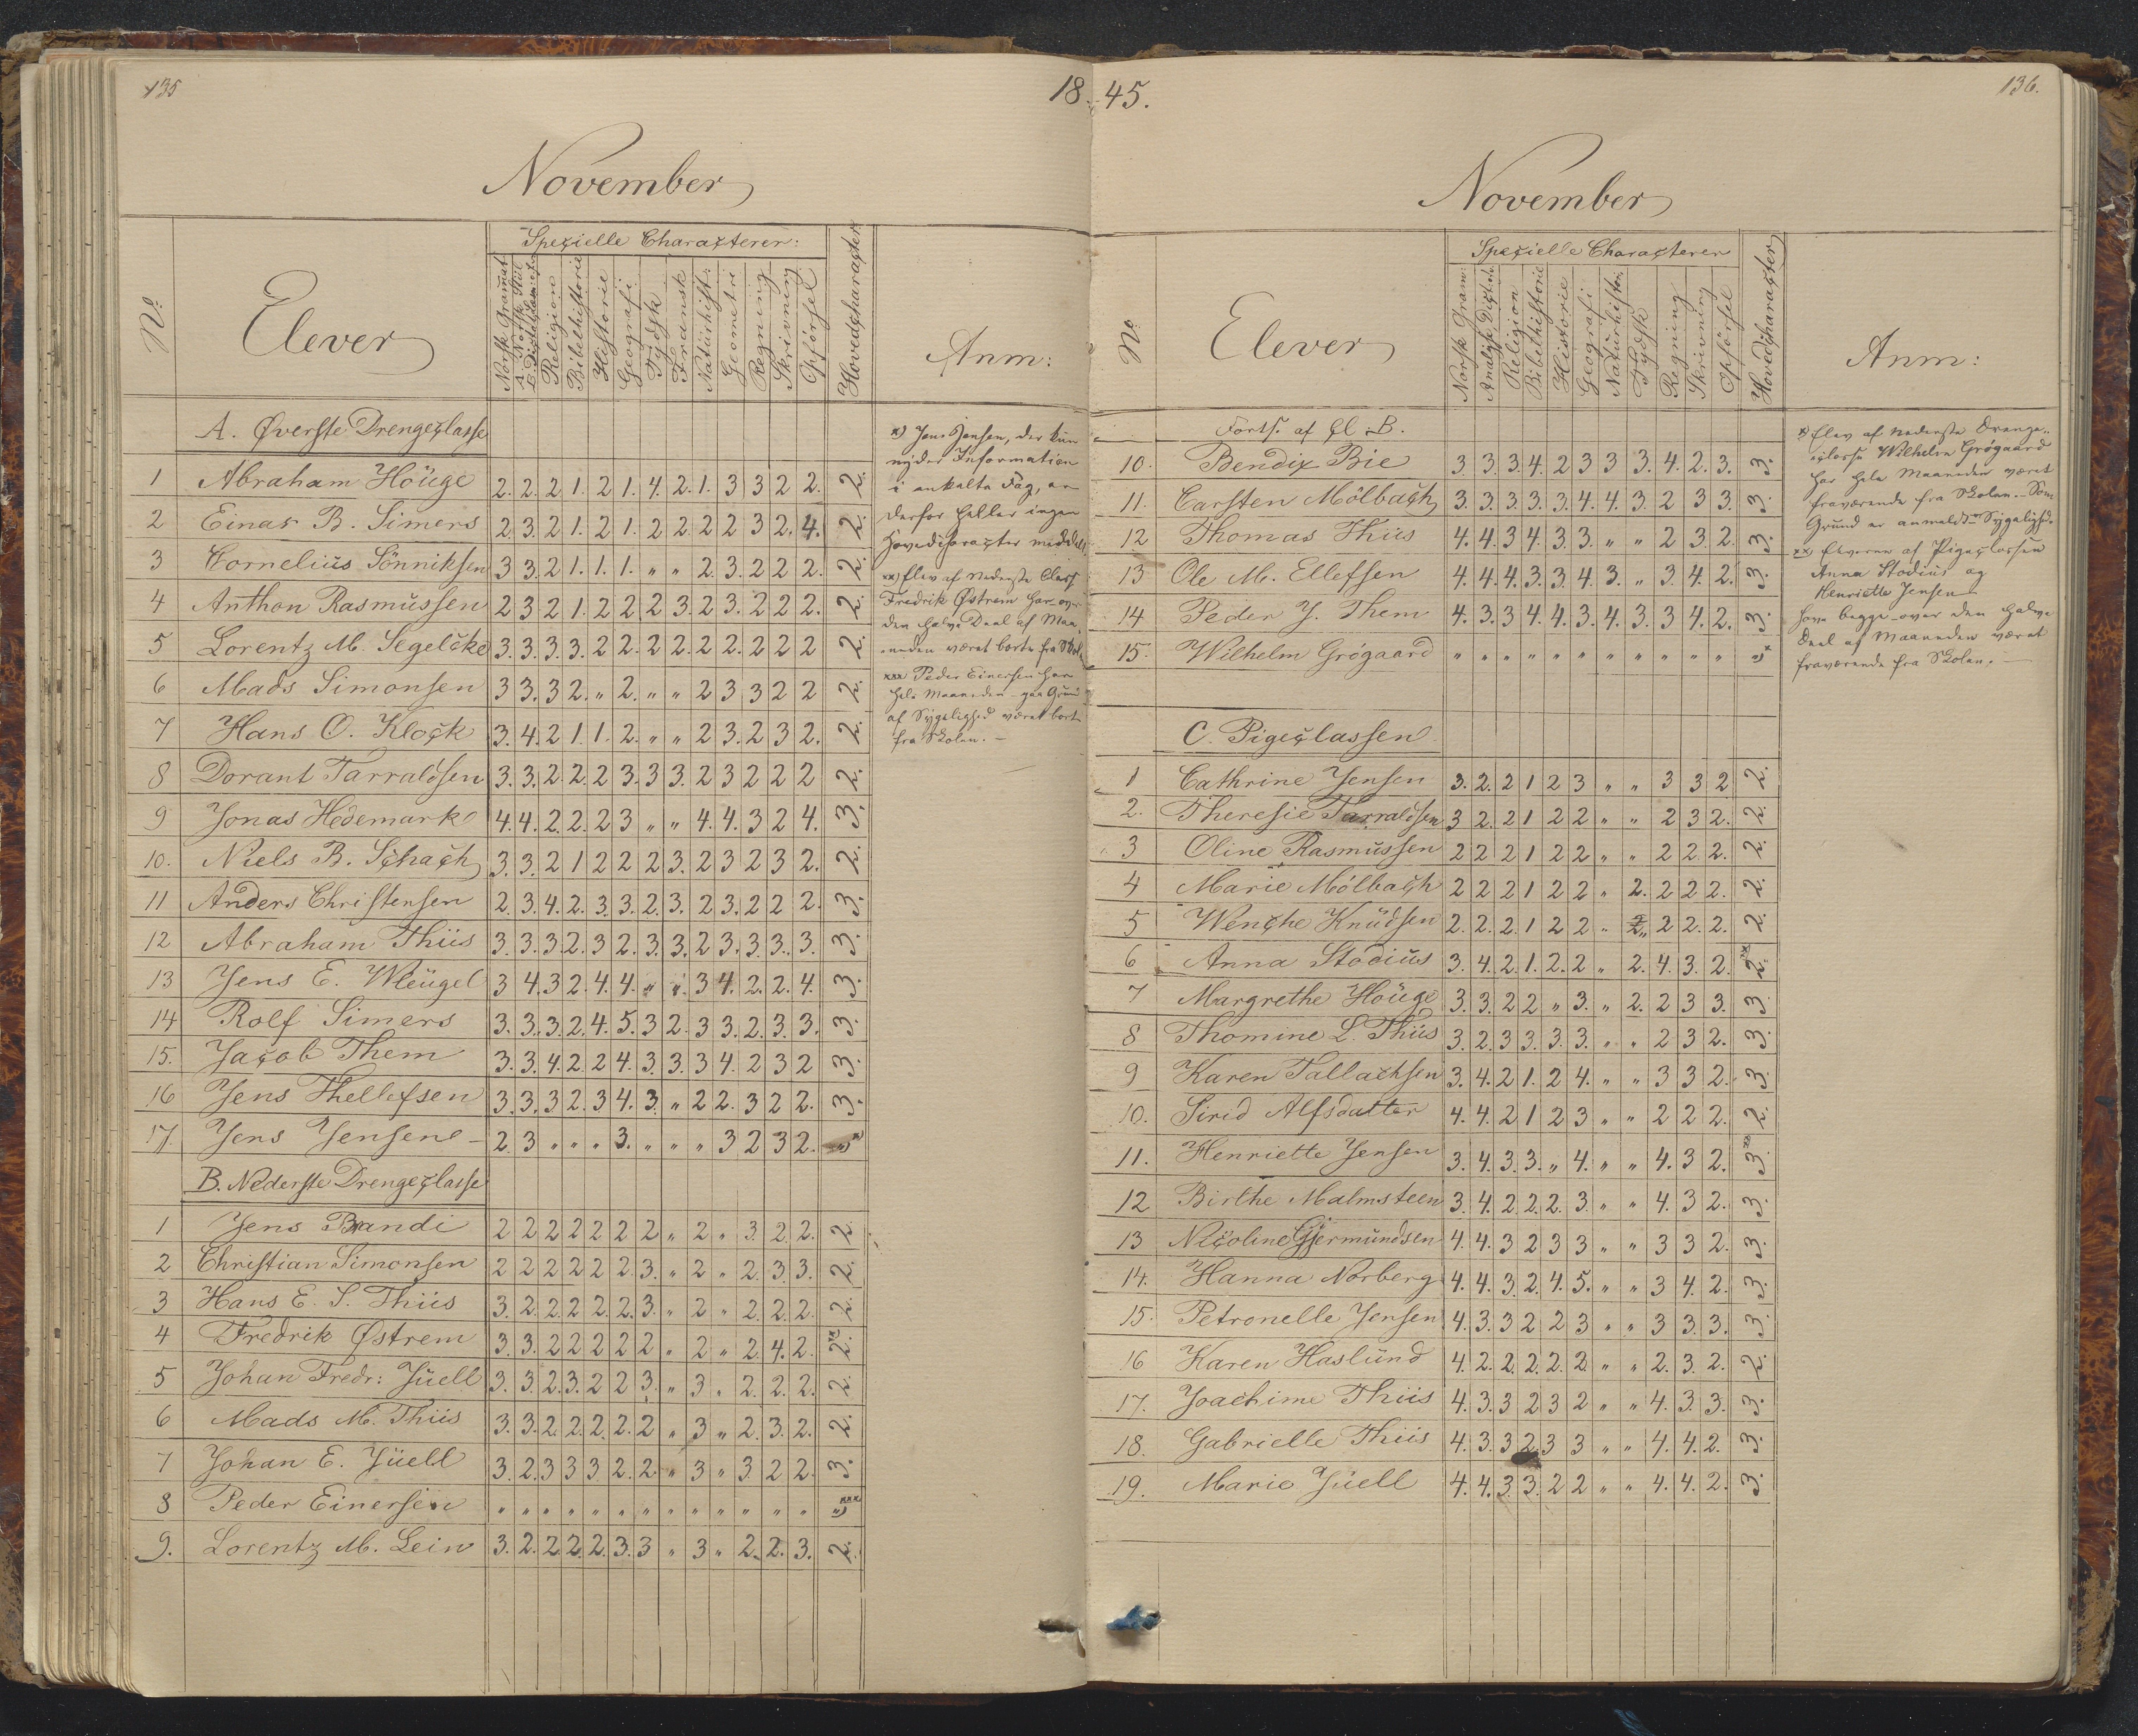 135
18
November
No.
Elever
Specielle Characterer:
Norsk Gramat.
A. Norsk Stiil
B. Dictat
Religion
Bibelhistorie
Historie
Geografi
Tydsk
Fransk
Naturhist:
Geometri
Regning
Skrivning
Opförsel
Hovedcharacter
Anm:
A. Øverste Drengeclasse
1 Abraham Houge 2. 2. 2 1. 2 1. 4. 2. 1. 3 3 2 2. 2.
2 Einar B. Simers 2 3. 2 1. 2 1. 2 2. 2 2 3 2. 4. 2.
3 Cornelius Sönniksen 3 3. 2 1. 1. 1. „ „ 2. 3. 2 2 2. 2.
4 Anthon Rasmussen 2 3 2 1. 2 2 2 3. 2 3. 2 2 2. 2.
5 Lorentz M. Segelcke 3. 3. 3. 3. 2 2. 2 2. 2 2. 2 2 2 2.
6 Mads Simonsen 3 3. 3 2. „ 2. „ „ 2 3 3 2 2 2.
7 Hans O. Klock 3. 4. 2 1 1. 2. „ „ 2 3. 2 3 2. 2.
8 Dorant Tarraldsen 3. 3. 2 2. 2 3. 3 3. 2 3 2 2 2 2.
9 Jonas Hedemark 4. 4. 2. 2. 2 3 „ „ 4. 4. 3 2 4. 3.
10. Niels B. Schach 3. 3. 2 1 2 2 2 3. 2 3 2 3 2. 2.
11 Anders Christensen 2. 3. 4. 2. 3. 3. 2. 3. 2 3. 2 2 2. 3.
12 Abraham Thiis 3. 3. 3. 2. 3 2. 3. 3. 2 3. 3. 3. 3. 3.
13 Jens E. Wleugel 3 4. 3 2. 4. 4. „ „ 3 4. 2. 2. 4. 3.
14 Rolf Simers 3. 3. 3. 2. 4. 5. 3 2. 3 3. 2. 3. 3. 3.
15. Jacob Them 3. 3. 4. 2. 2 4. 3. 3. 3 4. 2 3 2 3.
16 Jens Thellefsen 3. 3. 3 2. 3 4. 3. „ 2 2. 3 2 2. 3.
17. Jens Jensen 2. 3 „ „ „ 3. „ „ „ 3 2 3 2. „ *
B. Nederste Drengeclasse
1 Jens Brandi 2 2 2 2 2 2 2 „ 2 „ 3. 2. 2. 2.
2 Christian Simonsen 2 2 2 2 2 2. 3. „ 2 „ 2. 3. 3. 2.
3 Hans E. S. Thiis 3. 2. 2. 2 2. 2. 3. „ 2 „ 2. 2. 2. 2.
4 Fredrik Østrem 3. 3. 2 2 2 2 2 „ 2 „ 2. 4. 2. 2. xx
5 Johan Fredr: Juell 3. 3. 2. 3. 2 2 3. „ 3 „ 2. 2. 2. 2.
6 Mads M. Thiis 3. 3. 2. 2. 2. 2. 2 „ 3 „ 2. 3. 2. 2.
7 Johan E. Juell 3. 2. 3 3 3. 2. 2. „ 3 „ 3. 2 2. 3.
8 Peder Einersen „ „ „ „ „ „ „ „ „ „ „ „ „ „ xxx
9. Lorentz M. Lein 3. 2. 2 2. 2. 3. 3 „ 3 „ 2. 2. 3. 2.
x) Jens Jensen, der kun
nyder Information
i enkelte Fag, er
derfor heller ingen
Hovedcharacter meddelt
xx) Elev af Nederste Class
Fredrik Østrem har over
den halve Deel af Maa-
neden været borte fra Skol
xxx Peder Einersen har
hele Maaneden paa Grund
af Sygelighed været borte
fra Skolen. —
45.
136.
November
No
Elever
Specielle Characterer
Norsk Gram:
Analyse, Dictat
Religion
Bibelhistorie
Historie
Geografi
Naturhistor.
Tydsk
Regning
Skrivning
Opförsel
Hovedcharacter
Anm:
Forts. af Cl. B.
10. Bendix Bie 3. 3. 3. 4. 2 3 3 3. 4. 2. 3. 3.
11. Carsten Mölbach 3. 3. 3. 3. 3. 4. 4. 3. 2 3 3. 3.
12 Thomas Thiis 4. 4. 3 4. 3. 3. „ „ 2 3. 2. 3.
13 Ole M. Ellefsen 4. 4. 4. 3. 3. 4. 3. „ 3. 4. 2. 3.
14 Peder J. Them 4. 3. 3 4. 4. 3. 4. 3. 3 4. 2. 3.
15. Wilhelm Grögaard „ „ „ „ „ „ „ „ „ „ „ „ *
C. Pigeclassen
1 Cathrine Jensen 3. 2. 2 1 2 3 „ „ 3 3 2 2.
2. Theresie Tarraldsen 3 2. 2 1 2 2 „ „ 2 3 2. 2.
3 Oline Rasmussen 2 2 2 1 2 2 „ „ 2 2 2. 2.
4 Marie Mölbach 2 2 2 1 2 2 „ 2. 2 2 2. 2.
5 Wenche Knudsen 2. 2. 2. 1 2 2 „ 2 „ 2 2. 2. 2.
6 Anna Stodius 3. 4. 2. 1. 2. 2 „ 2. 4. 3. 2. 2. xx
7 Margrethe Houge 3. 3. 2 2 „ 3. „ 2. 2 3 3. 3
8 Thomine L. Thiis 3. 2. 3 3. 3. 3. „ „ 2 3 2. 3.
9 Karen Tallachsen 3. 4. 2 1. 2 4. „ „ 3 3 2. 3.
10. Sirid Alfsdatter 4. 4. 2 1 2 3 „ „ 2 2 2. 2.
11. Henriette Jensen 3. 4. 3. 3. „ 4. „ „ 4. 3 2. 3. xx
12 Birthe Malmsteen 3. 4. 2. 2. 2. 3. „ „ 4. 3 2. 3.
13 Nicoline Gjermundsen 4. 4. 3 2 3 3 „ „ 3 3 2. 3.
14. Hanna Norberg 4. 4. 3. 2. 4. 5. „ „ 3 4. 2. 3.
15. Petronelle Jensen 4. 3. 3 2 2 3 „ „ 3 3. 3. 3.
16 Karen Haslund 4. 2. 2. 2. 2. 2. „ „ 2. 3. 2. 2.
17. Joachime Thiis 4. 3. 3 2 3 2 „ „ 4. 3. 3. 3.
18. Gabrielle Thiis 4. 3. 3 2. 3 3 „ „ 4. 4. 2. 3.
19. Marie Juell 4. 4. 3. 3. 2 2 „ „ 4. 4. 2. 3.
x) Elev af Nederste Drenge-
classe Wilhelm Grögaard
har hele Maaneden været
fraværende fra Skolen. — Som
Grund er anmeldt Sygelighed.
xx) Eleverne af Pigeclassen
Anna Stodius og
Henriette Jensen
have begge over den halve
Deel af Maaneden været
fraværende fra Skolen. —